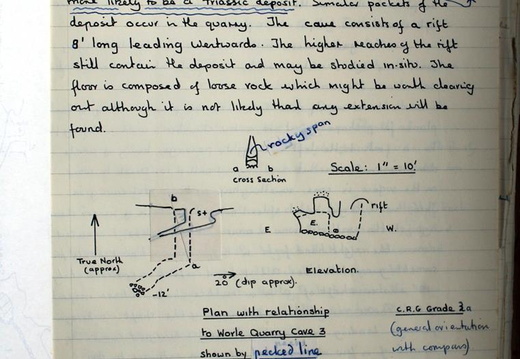 more likely to be a Triassic deposit. Similar pockets of the
deposit occur in the quarry. The cave consists of a rift
8' long leading westwards. The higher reaches of the rift
still contain the deposit and may be studied in-situ. The
floor is composed of loose rock which might be worth clearing
out although it is not likely that any extension will be
found.
rocky span
a b
cross section
Scale: 1" = 10'
b
5+
a
True North
(approx)
-12'
20 (dip approx).
E
E.
rift
W.
Elevation.
Plan with relationship
to Worle Quarry Cave 3
shown by pecked line
C.R.G Grade
(general orientation
with compass)